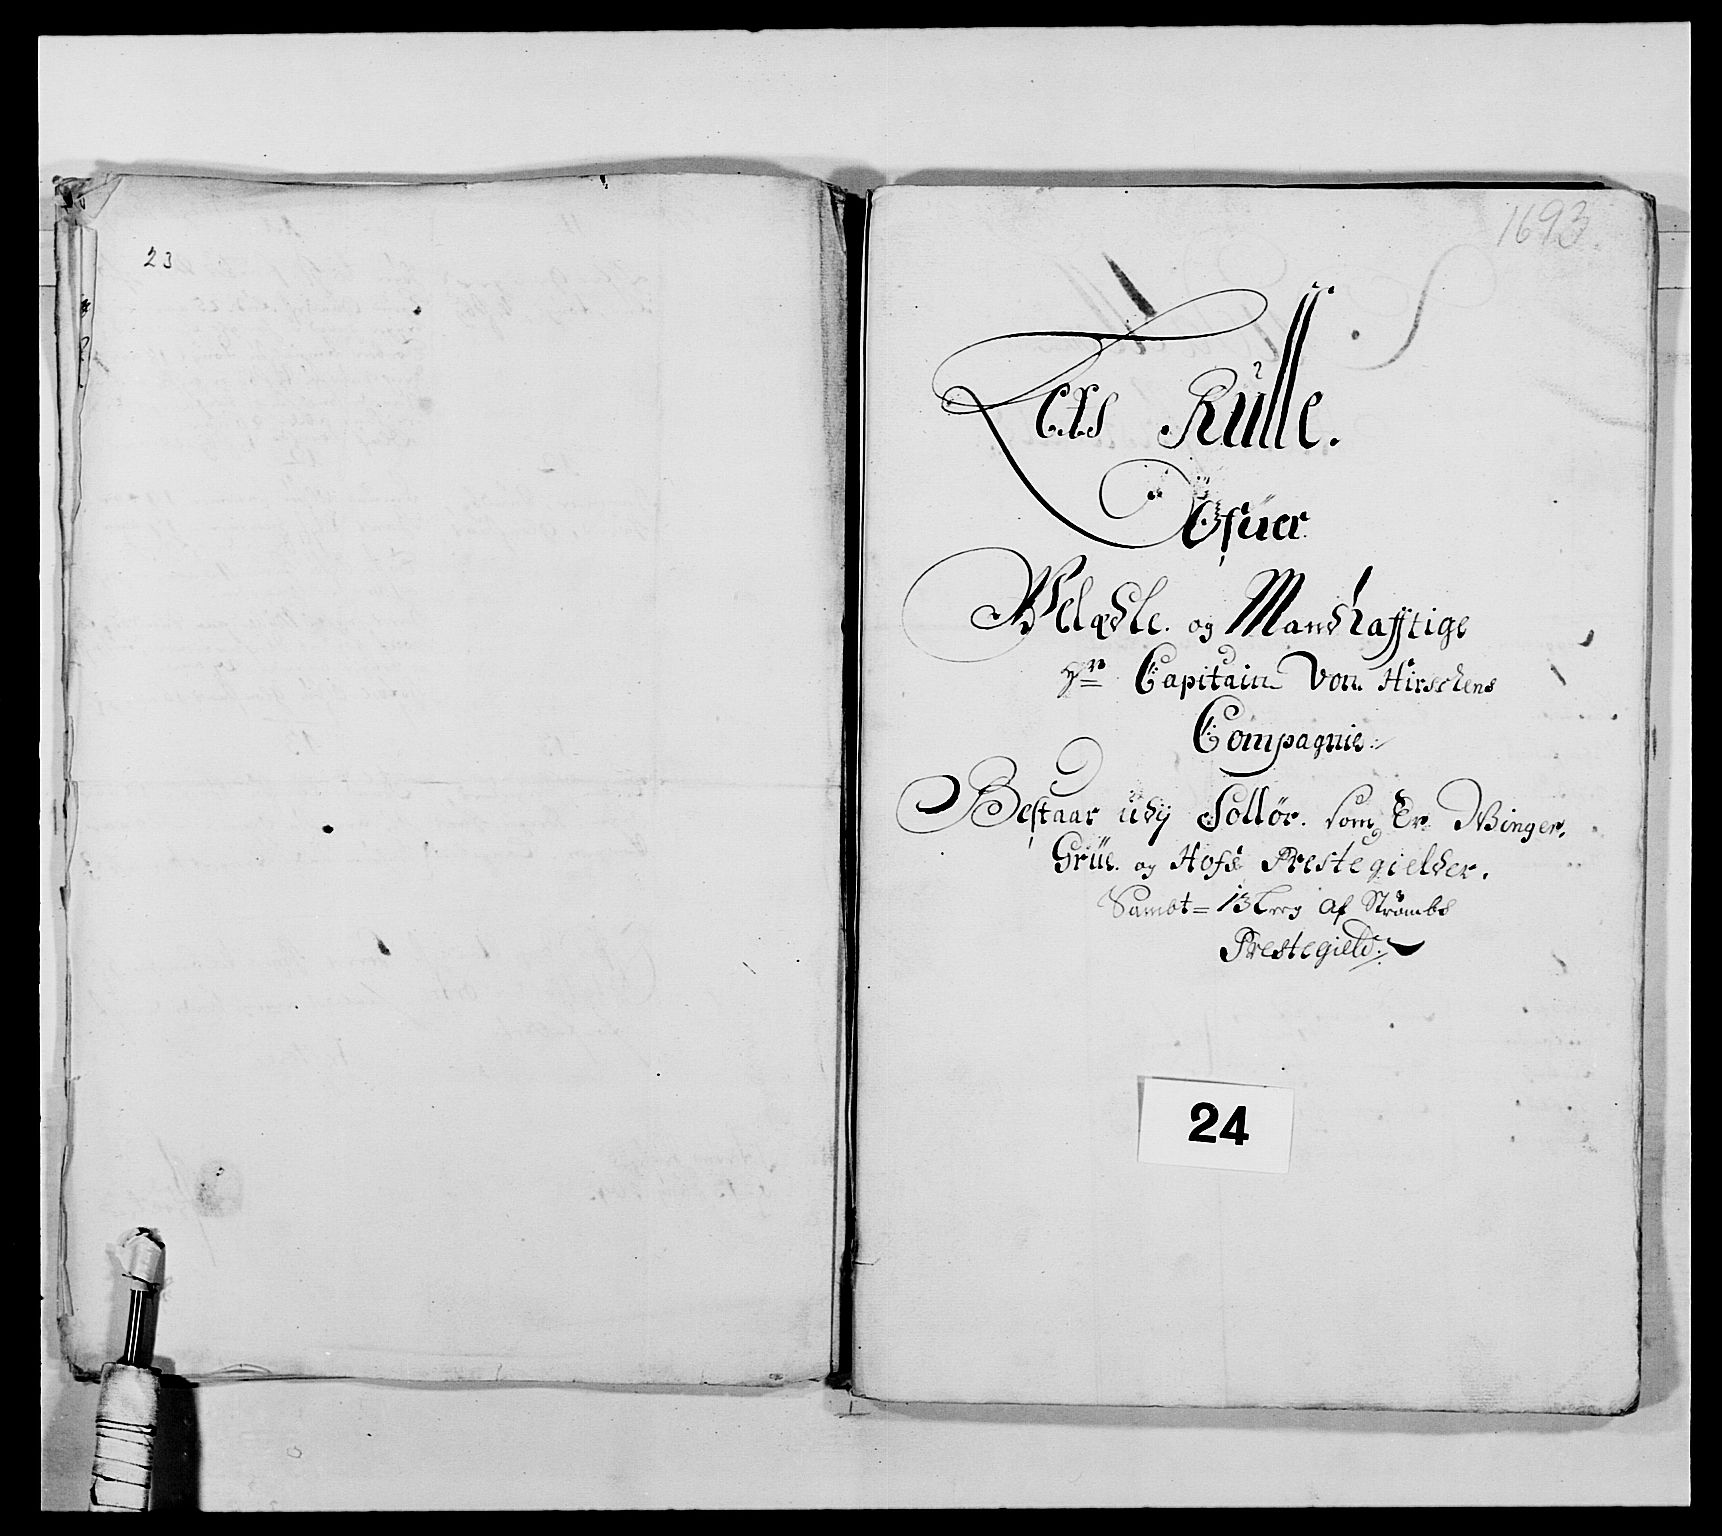 23
1693.
Lets Rulle.
Ofuer
Welædle. og Mandhafftige
Hr Capitain Von Hirschens
Compagnie.
Bestaar udij Sollør. som Er Winger,
Grüe. og Hofs Prestegielder.
Sambt= 13 Læg af Strømbs
Prestegield.
24